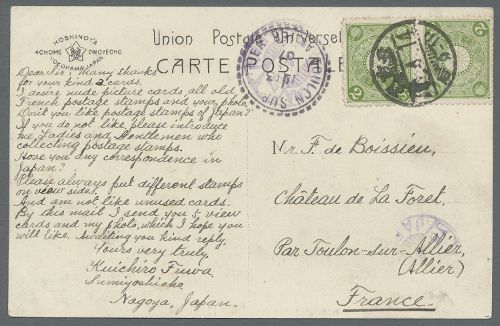 Union Postale Universelle
CARTE POSTALE
HOSHINOYA
4CHOME ONOYECHO
YOKOHAMA, JAPAN
Dear Sir: Many thanks
for your kind 2 cards.
I desire nude picture cards, all old
French postage stamps and your photo.
Don't you like postage stamps of Japan?
If you do not like please introduce
me, Ladies and Mentlemen who
collecting postage stamps.
Have you any correspondence in
Japan?
Please always put different stamps
on veaw sides.
And am not like unused cards.
By this mail I send you 5 view
cards and my photo, which I hope you
will like. Awaiting you kind reply,
Yours very truly,
Kuichiro Fuwa
Sumiyoshicho
Nagoya, Japan.
Nr. F. de Boissieu,
Château de La Foret,
Par Toulon-sur-Allier,
(Allier)
France